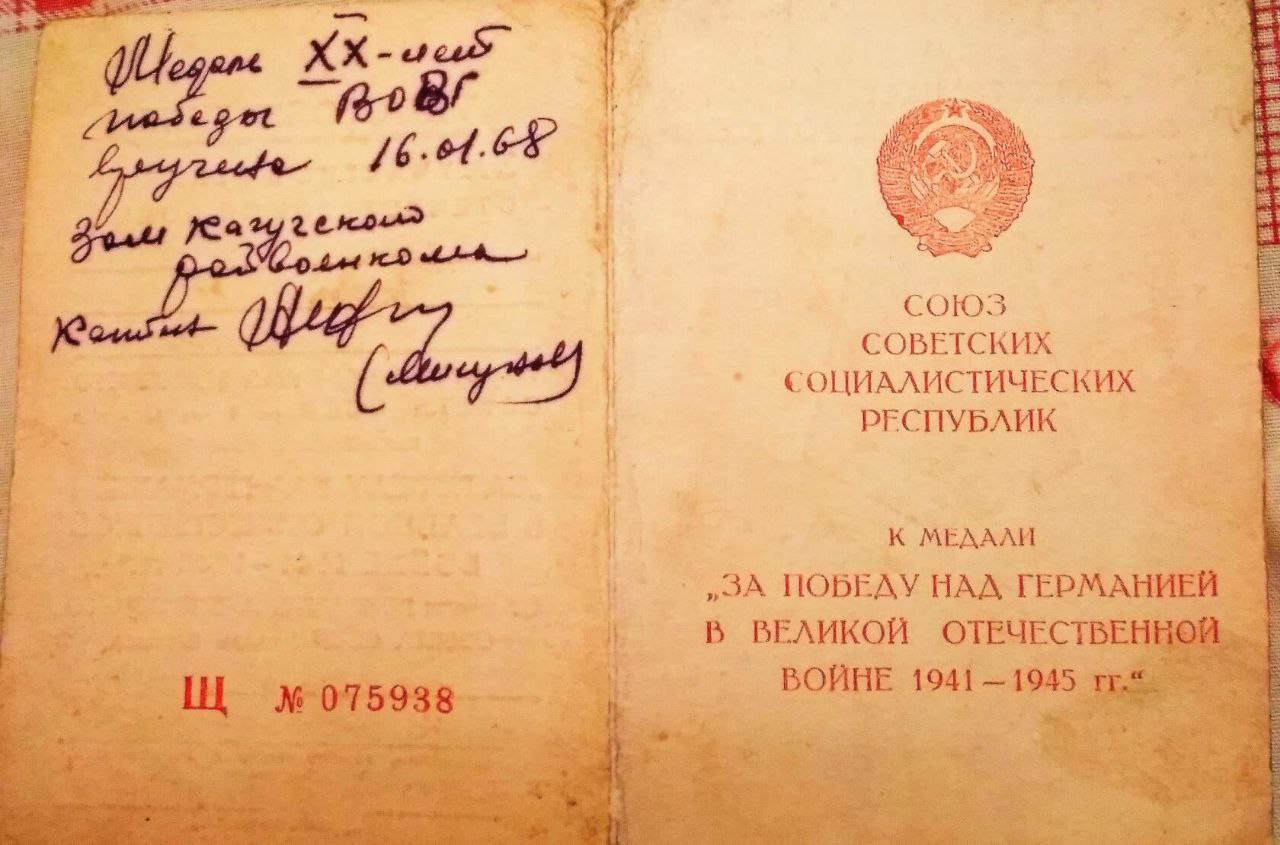 Медаль XX-лет
победы ВОВ
вручена 16.01.68
Зам Качугского
райвоенкома
Капитан
Щ № 075938
СОЮЗ
СОВЕТСКИХ
СОЦИАЛИСТИЧЕСКИХ
РЕСПУБЛИК
К МЕДАЛИ
„ЗА ПОБЕДУ НАД ГЕРМАНИЕЙ
В ВЕЛИКОЙ ОТЕЧЕСТВЕННОЙ
ВОЙНЕ 1941—1945 гг.“